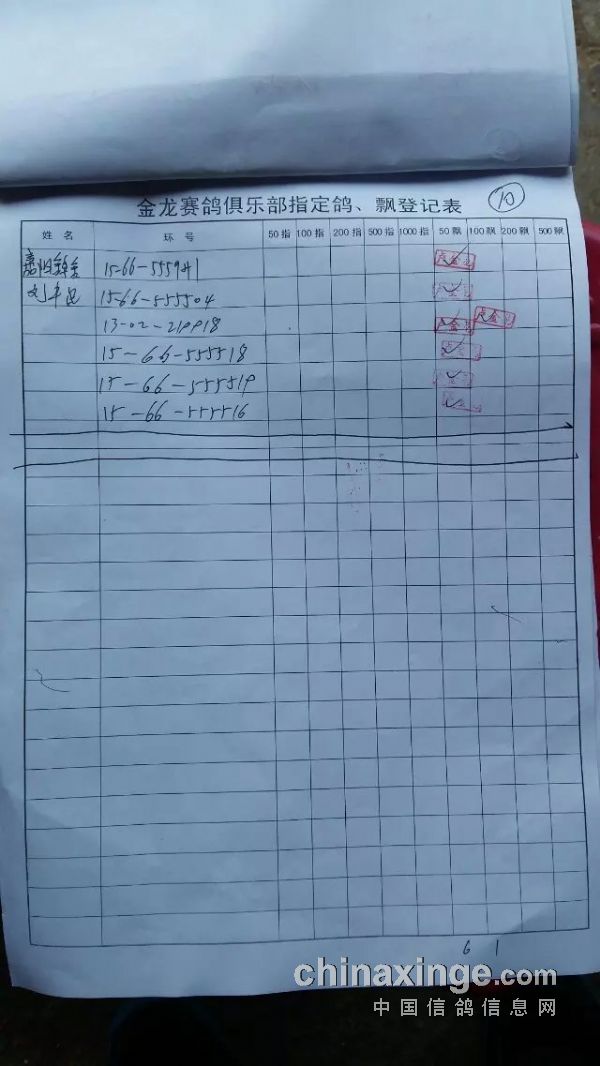 金龙赛鸽俱乐部指定鸽、飘登记表 10
姓名 环号 50指 100指 200指 500指 1000指 50飘 100飘 200飘 500飘
15-66-555941
15-66-555504
13-02-219918
15-66-555518
15-66-555519
15-66-555516
6 1
chinaxinge.com
中国信鸽信息网